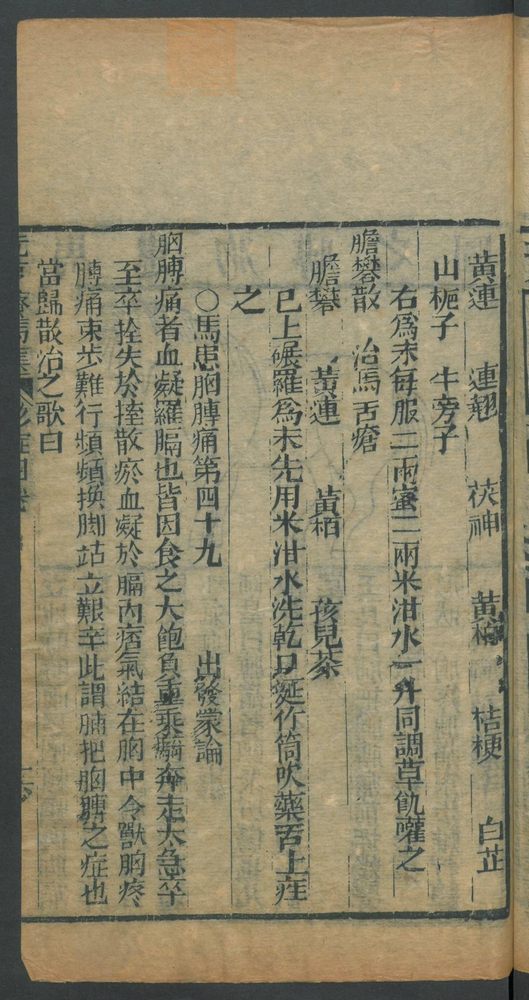 黄連 連翹 茯神 黄栢 桔梗 白芷
山栀子 牛旁子
右爲末每服二兩蜜二兩米泔水一升同調草飢嚾之
膽礬散 治馬舌瘡
膽礬 黃連 黄栢 孩兒茶
已上碾羅爲末先用米泔水洗乾口涎竹筒吹藥舌上症
之
○馬患胸膊痛第四十九 出發蒙論
胸膊痛者血凝羅膈也皆因食之大飽負重乘騎奔走大急卒
至卒拴失於𢹂散瘀血凝於膈内痞氣結在胸中令獸胸疼
膊痛束步難行頻頻換脚站立艱辛此謂腩把胸膊之症也
當歸散治之歌曰